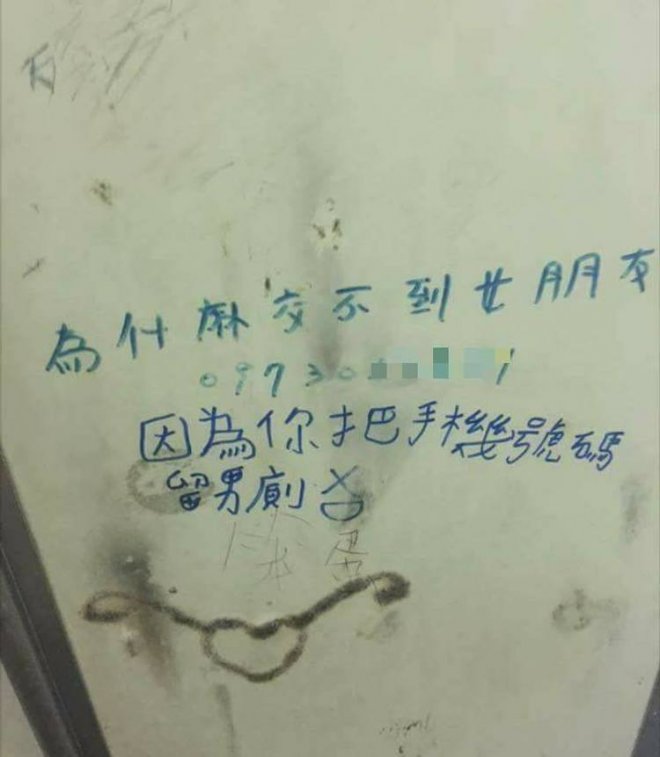 為什麻交不到女朋友
09730 1
因為你把手機號碼
留男廁 XD